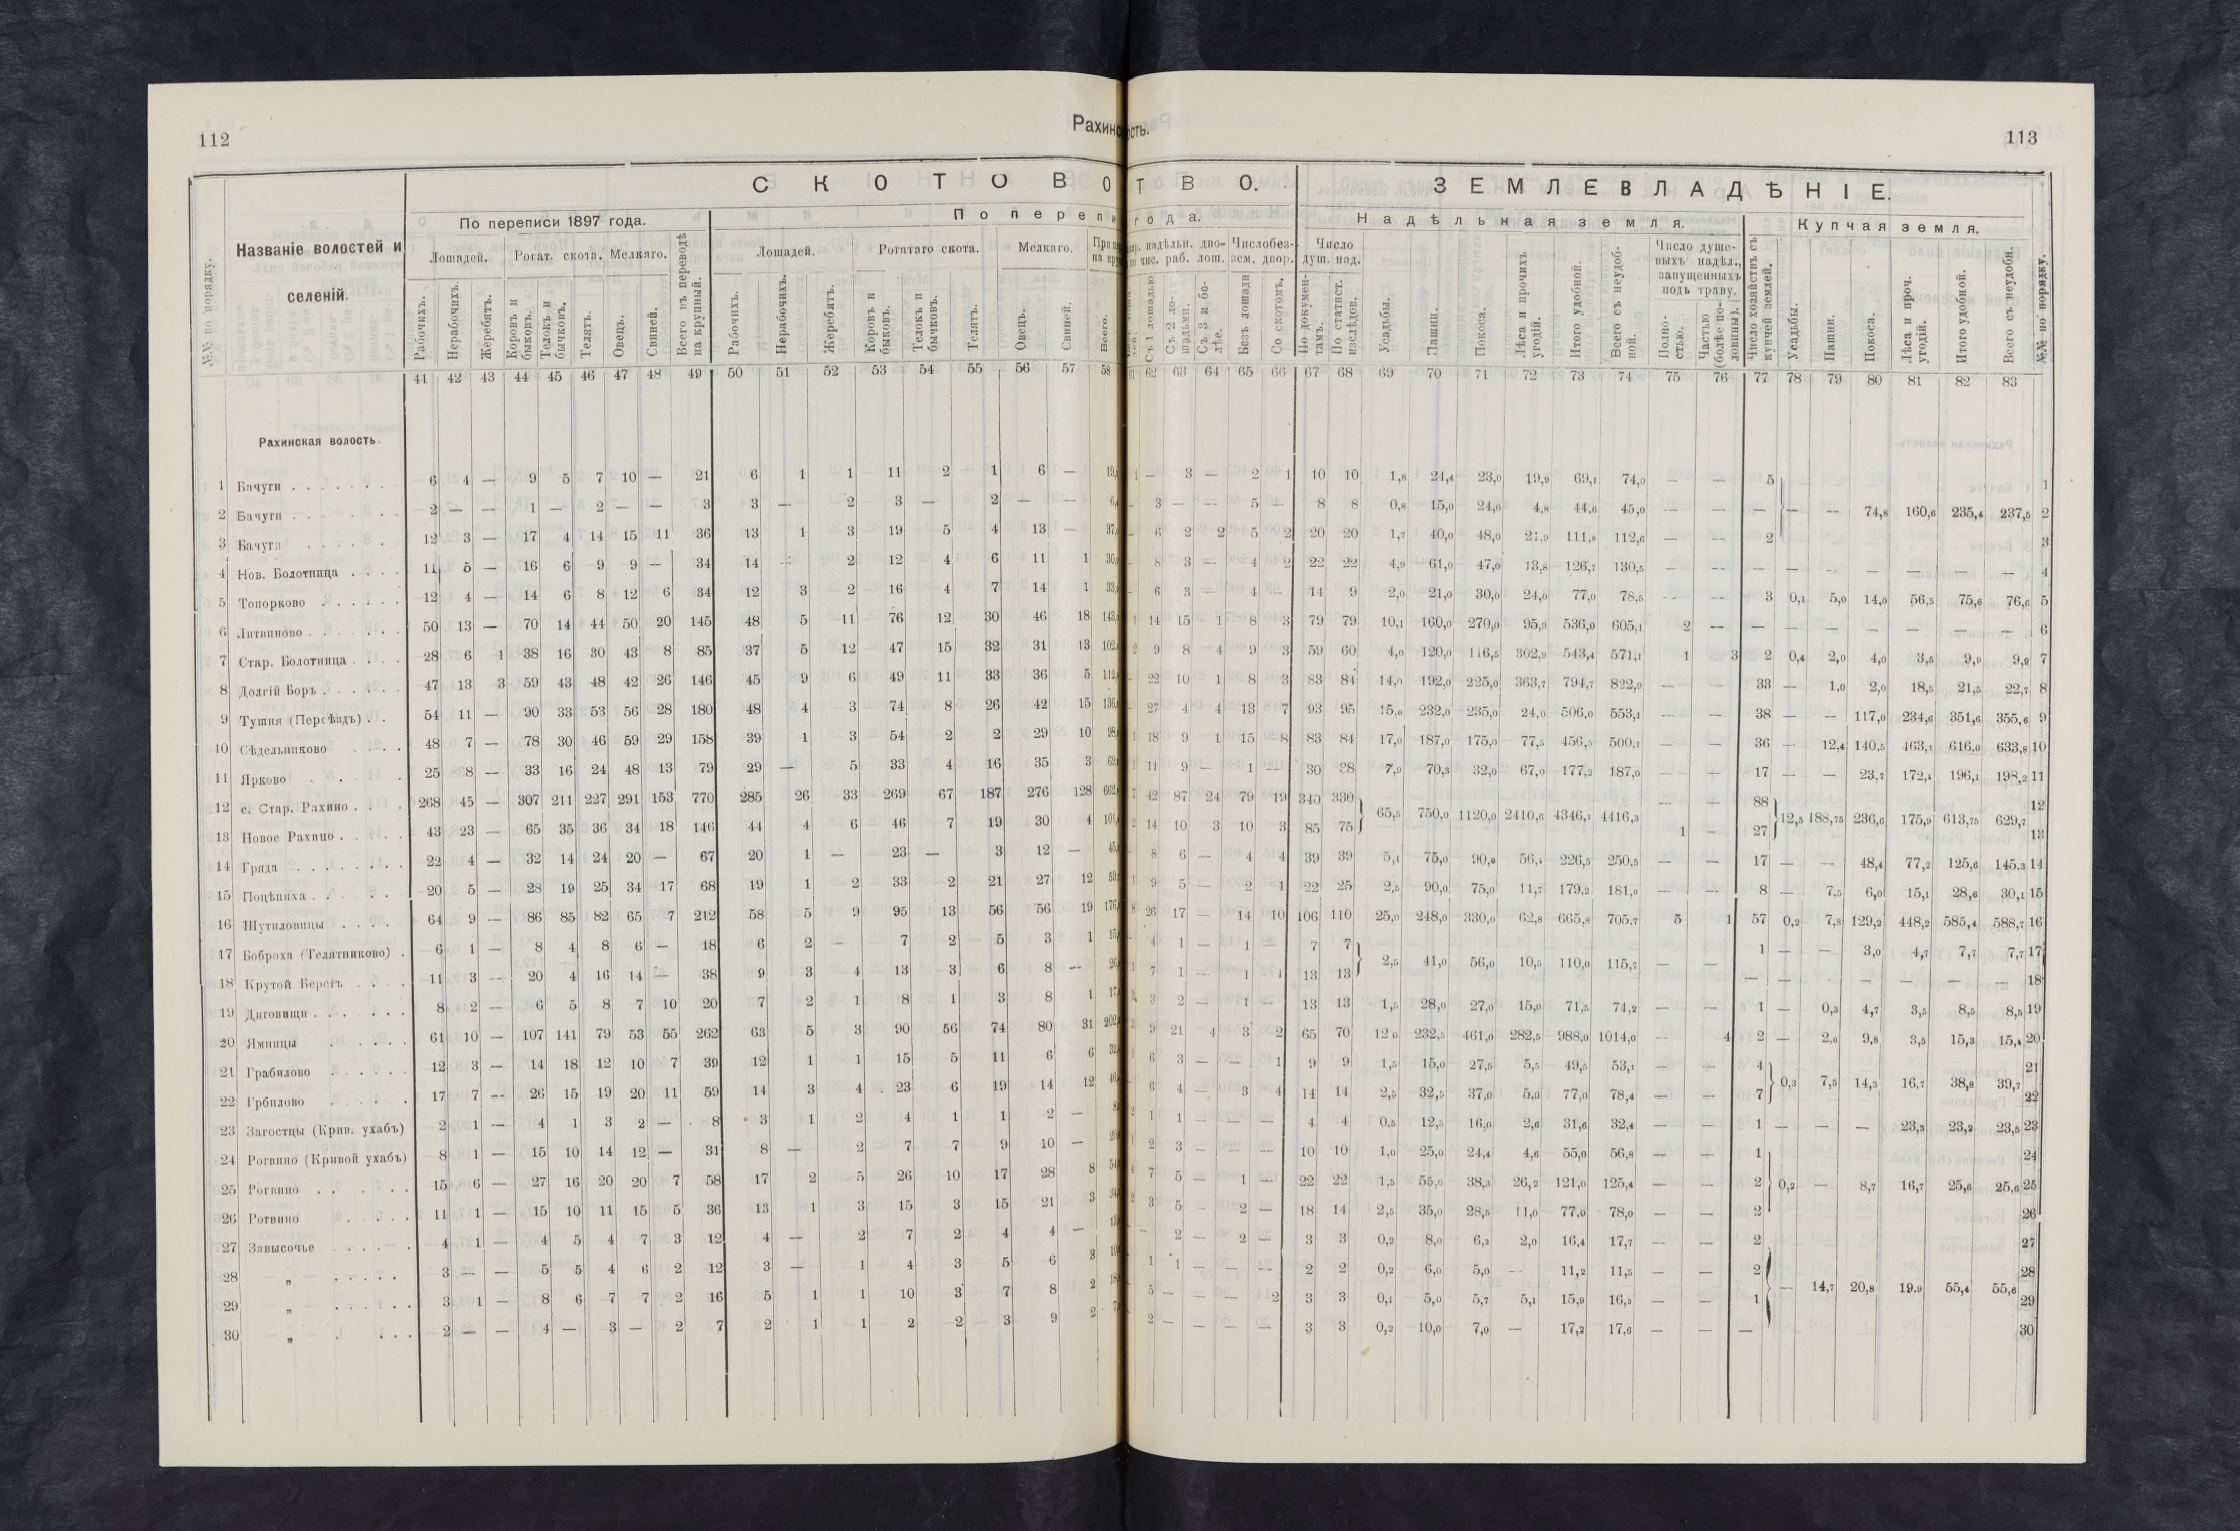 112
Рахинс
ость.
113
С К О Т О В О
Т В О.
З Е М Л Е В Л А Д Ѣ Н І Е.
№№ по порядку.
Названіе волостей и
селеній.
По переписи 1897 года.
П о п е р е п и
г о д а.
Н а д ѣ л ь н а я з е м л я.
К у п ч а я з е м л я.
Лошадей. Рогат. скота. Мелкаго.
Всего въ переводѣ на крупный.
Лошадей. Рогатаго скота. Мелкаго.
надѣльн. дво-
чис. раб. лош.
Числобез-
зем. двор.
Число
душ. над.
Число душе-
выхъ надѣл.,
запущенныхъ
подъ траву.
Рабочихъ. Нерабочихъ. Жеребятъ. Коровъ и быковъ. Телокъ и бычковъ. Телятъ. Овецъ. Свиней.
Рабочихъ. Нерабочихъ. Жеребятъ. Коровъ и быковъ. Телокъ и бычковъ. Телятъ. Овецъ. Свиней. Всего.
Съ 1 лошадью Съ 2 ло-шадьми. Съ 3 и бо-лѣе. Безъ лошади Со скотомъ. По докумен-тамъ. По статист. изслѣдов. Усадьбы. Пашни. Покоса. Лѣса и прочихъ угодій. Итого удобной. Всего съ неудоб-ной. Полно-стью. Частью (болѣе по-ловины). Число хозяйствъ съ купчей землей. Усадьбы. Пашни. Покоса. Лѣса и проч. угодій. Итого удобной. Всего съ неудобн. №№ по порядку.
41 42 43 44 45 46 47 48 49 50 51 52 53 54 55 56 57 58
62 63 64 65 66 67 68 69 70 71 72 73 74 75 76 77 78 79 80 81 82 83
Рахинская волость.
1 Бачуги . . . . . . . 6 4 — 9 5 7 10 — 21 6 1 1 11 2 1 6 —
1 — 3 — 2 1 10 10 1,8 24,4 23,0 19,9 69,1 74,0 — — 5 1
2 Бачуги . . . . . . . 2 — — 1 — 2 — — 3 3 — 2 3 — 2 — —
— 3 — — 5 — 8 8 0,8 15,0 24,0 4,8 44,6 45,0 — — — — — 74,8 160,6 235,4 237,5 2
3 Бачуги . . . . . 12 3 — 17 4 14 15 11 36 13 1 3 19 5 4 13 —
— 6 2 2 5 2 20 20 1,7 40,0 48,0 21,9 111,6 112,6 — — 2 3
4 Нов. Болотница . . . . 11 5 — 16 6 9 9 — 34 14 — 2 12 4 6 11 1
— 8 3 — 4 2 22 22 4,9 61,0 47,0 13,8 126,7 130,5 — — — — — — — — — 4
5 Топорково . . . . . . 12 4 — 14 6 8 12 6 34 12 3 2 16 4 7 14 1
— 6 3 — 4 — 14 9 2,0 21,0 30,0 24,0 77,0 78,5 — — 3 0,1 5,0 14,0 56,5 75,6 76,6 5
6 Литвиново . . . . . . 50 13 — 70 14 44 50 20 145 48 5 11 76 12 30 46 18
1 14 15 1 8 3 79 79 10,1 160,0 270,0 95,9 536,0 605,1 2 — — — — — — — — 6
7 Стар. Болотница . . . . 28 6 1 38 16 30 43 8 85 37 5 12 47 15 32 31 13
2 9 8 4 9 3 59 60 4,0 120,0 116,5 302,9 543,4 571,1 1 3 2 0,4 2,0 4,0 3,5 9,9 9,9 7
8 Долгій Боръ . . . . . . 47 13 3 59 43 48 42 26 146 45 9 6 49 11 33 36 5
— 22 10 1 8 3 83 84 14,0 192,0 225,0 363,7 794,7 822,9 — — 33 — 1,0 2,0 18,5 21,5 22,7 8
9 Тушня (Переѣздъ) . . 54 11 — 90 33 53 56 28 180 48 4 3 74 8 26 42 15
— 27 4 4 13 7 93 95 15,0 232,0 235,0 24,0 506,0 553,1 — — 38 — — 117,0 234,6 351,6 355,6 9
10 Сѣдельниково . . . . 48 7 — 78 30 46 59 29 158 39 1 3 54 2 2 29 10
1 18 9 1 15 8 83 84 17,0 187,0 175,0 77,5 456,5 500,1 — — 36 — 12,4 140,5 463,1 616,0 633,8 10
11 Ярково . . . . . 25 8 — 33 16 24 48 13 79 29 — 5 33 4 16 35 3
1 11 9 — 1 — 30 38 7,9 70,3 32,0 67,0 177,2 187,0 — — 17 — — 23,7 172,4 196,1 198,2 11
12 с. Стар. Рахино . . . . 268 45 — 307 211 227 291 153 770 285 26 33 269 67 187 276 128
7 42 87 24 79 19 340 330 65,5 750,0 1120,0 2410,6 4346,1 4416,3 — — 88 12,5 188,75 236,6 175,9 613,75 629,7 12
13 Новое Рахино . . . . 43 23 — 65 35 36 34 18 146 44 4 6 46 7 19 30 4
2 14 10 3 10 3 85 75 1 — 27 13
14 Гряда . . . . . . . . 22 4 — 32 14 24 20 — 67 20 1 — 23 — 3 12 —
— 8 6 — 4 4 39 39 5,1 75,0 90,0 56,4 226,5 250,5 — — 17 — — 48,4 77,2 125,6 145.3 14
15 Поцѣпиха . . . . . 20 5 — 28 19 25 34 17 68 19 1 2 33 2 21 27 12
1 9 5 — 2 1 22 25 2,5 90,0 75,0 11,7 179,2 181,0 — — 8 — 7,5 6,0 15,1 28,6 30,1 15
16 Шутиловицы . . . . 64 9 — 86 85 82 65 7 212 58 5 9 95 13 56 56 19
8 26 17 — 14 10 106 110 25,0 248,0 330,0 62,8 665,8 705.7 5 1 57 0,2 7,8 129,2 448,2 585,4 588,7 16
17 Боброха (Телятниково) . 6 1 — 8 4 8 6 — 18 6 2 — 7 2 5 3 1
— 4 1 — 1 — 7 7 2,5 41,0 56,0 10,5 110,0 115,7 1 — — 3,0 4,7 7,7 7,7 17
18 Крутой Берегъ . . . . 11 3 — 20 4 16 14 — 38 9 3 4 13 3 6 8 —
1 7 1 — 1 1 13 13 — — — — — — — 18
19 Диговищи . . . . . . 8 2 — 6 5 8 7 10 20 7 2 1 8 1 3 8 1
3 3 2 — 1 — 13 13 1,5 28,0 27,0 15,0 71,5 74,2 — — 1 — 0,3 4,7 3,5 8,5 8,5 19
20 Ямницы . . . . . 61 10 — 107 141 79 53 55 262 63 5 3 90 56 74 80 31
9 21 4 3 2 65 70 12 0 232,5 461,0 282,5 988,0 1014,0 — 4 2 — 2,0 9,8 3,5 15,3 15,4 20
21 Грабилово . . . . . 12 3 — 14 18 12 10 7 39 12 1 1 15 5 11 6 6
1 6 3 — — 1 9 9 1,5 15,0 27,5 5,5 49,5 53,1 — — 4 0,3 7,5 14,3 16,7 38,8 39,7 21
22 Грбилово . . . . . 17 7 — 26 15 19 20 11 59 14 3 4 23 6 19 14 12
— 6 4 — 3 4 14 14 2,5 32,5 37,0 5,0 77,0 78,4 — — 7 22
23 Загостцы (Крив. ухабъ) 2 1 — 4 1 3 2 — 8 3 1 2 4 1 1 2 —
2 1 1 — — — 4 4 0,5 12,5 16,0 2,6 31,6 32,4 — — 1 — — — 23,3 23,2 23,5 23
24 Рогвино (Кривой ухабъ) 8 1 — 15 10 14 12 — 31 8 — 2 7 7 9 10 —
1 2 3 — — — 10 10 1,0 25,0 24,4 4,6 55,0 56,8 — — 1 24
25 Рогвино . . . . . 15 6 — 27 16 20 20 7 58 17 2 5 26 10 17 28 8
4 7 5 — 1 — 22 22 1,5 55,0 38,3 26,2 121,0 125,4 — — 2 0,2 — 8,7 16,7 25,6 25,6 25
26 Рогвино . . . . . 11 1 — 15 10 11 15 5 36 13 1 3 15 3 15 21 3
2 3 5 — 2 — 18 14 2,5 35,0 28,5 11,0 77,0 78,0 — — 2 26
27 Завысочье . . . . . 4 1 — 4 5 4 7 3 12 4 — 2 7 2 4 4 —
— 2 — 2 — 3 3 0,2 8,0 6,2 2,0 16,4 17,7 — — 2 27
28 „ . . . . . 3 — — 5 5 4 6 2 12 3 — 1 4 3 5 6 3
1 1 — — — 2 2 0,2 6,0 5,0 — 11,2 11,5 — — 2 — 14,7 20,8 19.9 55,4 55,6 28
29 „ . . . . . . 3 1 — 8 6 7 7 2 16 5 1 1 10 3 7 8 2
5 — — — 2 3 3 0,1 5,0 5,7 5,1 15,9 16,5 — — 1 29
30 „ . . . . 2 — — 4 — 3 — 2 7 2 1 1 2 2 3 9 2
2 — — — — 3 3 0,2 10,0 7,0 — 17,2 17,6 — — — 30